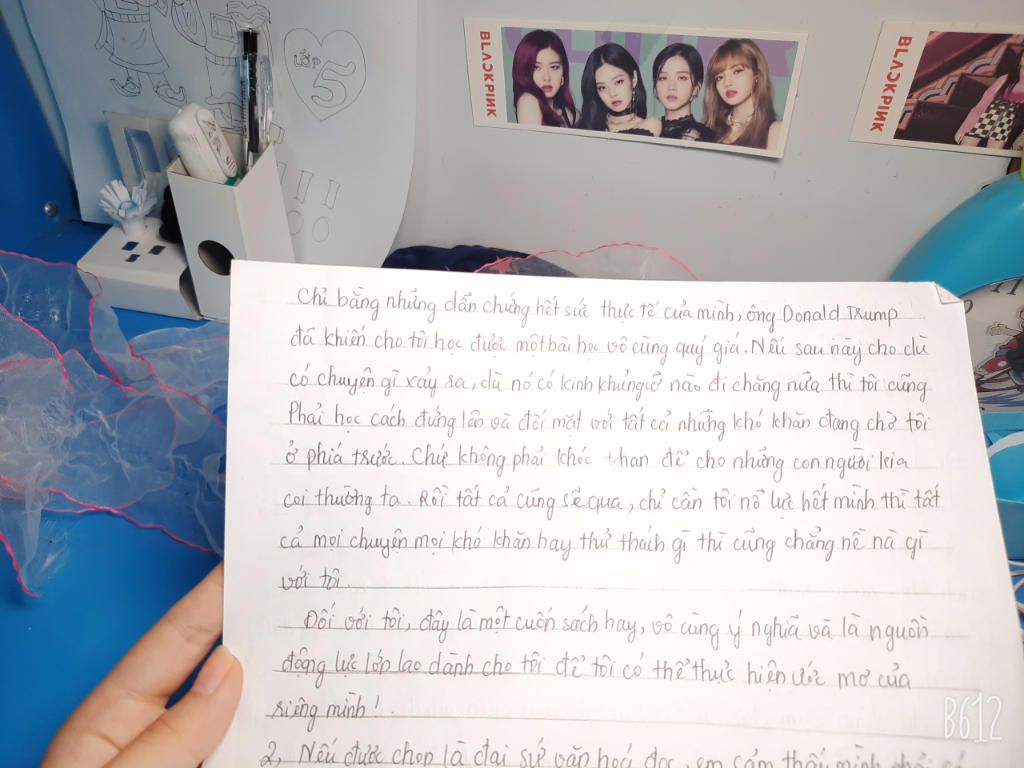 LỚP
5
BLACKPINK
BLACKPINK
Chỉ bằng những dẫn chứng hết sức thực tế của mình, ông Donald Trump
đã khiến cho tôi học được một bài học vô cùng quý giá. Nếu sau này cho dù
có chuyện gì xảy ra, dù nó có kinh khủng cỡ nào đi chăng nữa thì tôi cũng
Phải học cách đứng lên và đối mặt với tất cả những khó khăn đang chờ tôi
ở phía trước. Chứ không phải khóc than để cho những con người kia
coi thường ta. Rồi tất cả cũng sẽ qua, chỉ cần tôi nỗ lực hết mình thì tất
cả mọi chuyện mọi khó khăn hay thử thách gì thì cũng chẳng nề nà gì
với tôi.
Đối với tôi, đây là một cuốn sách hay, vô cùng ý nghĩa và là nguồn
động lực lớn lao dành cho tôi để tôi có thể thực hiện ước mơ của
riêng mình!
2, Nếu được chọn là đại sứ văn hoá đọc, em cảm thấy mình phải có
B612